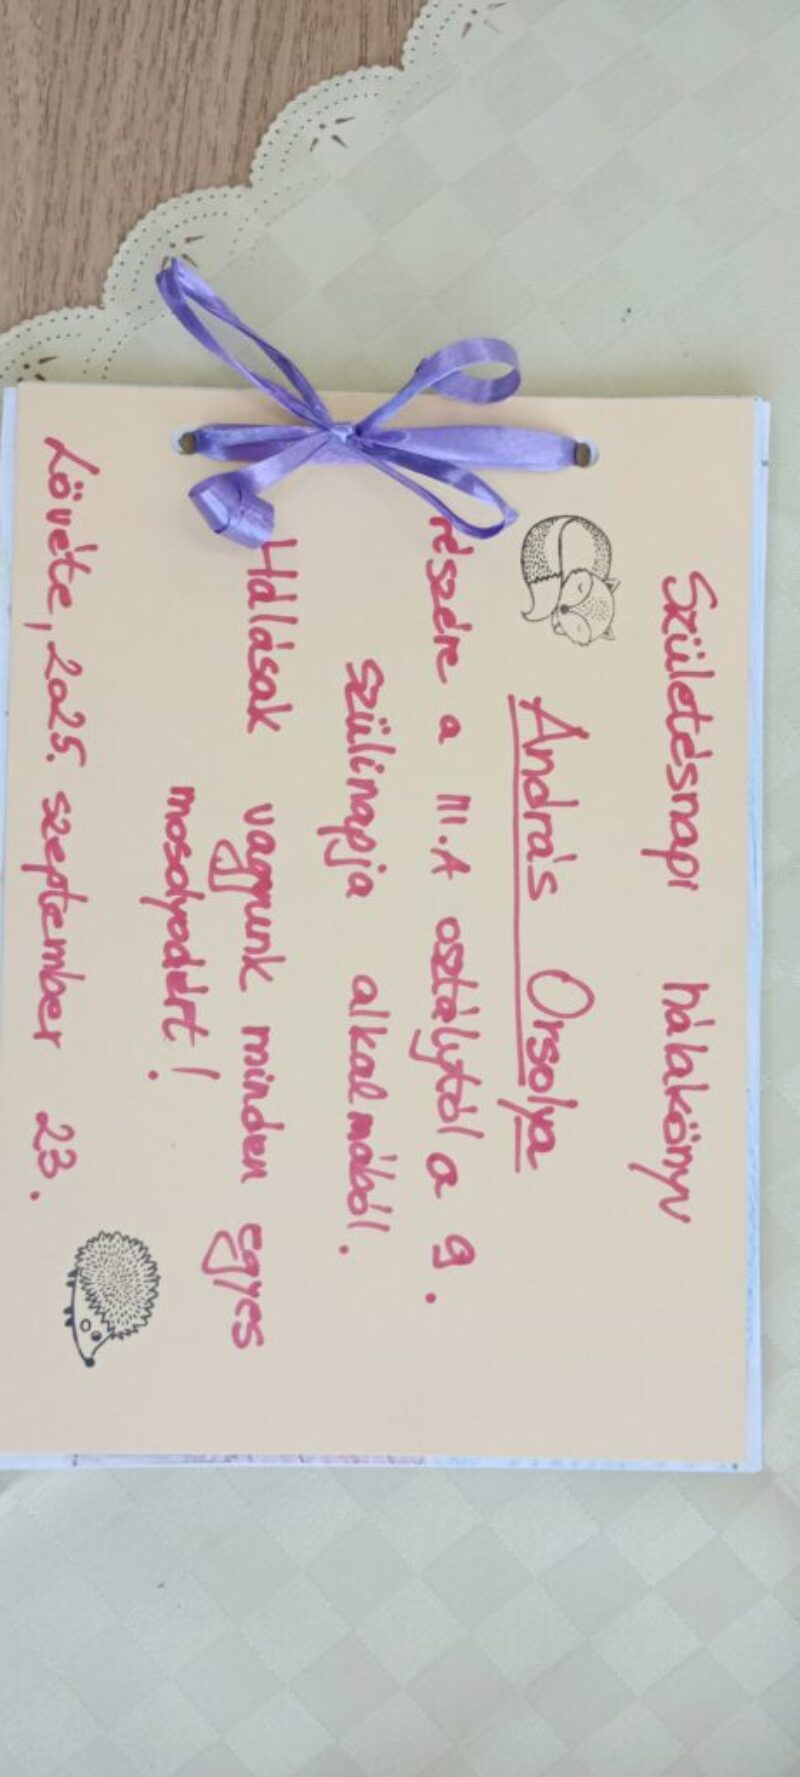 Születésnapi hálakönyv
András Orsolya
részére a III.A osztálytól a 9.
szülinapja alkalmából.
Hálásak vagyunk minden egyes
mosolyodért!
Lövéte, 2025. szeptember 23.